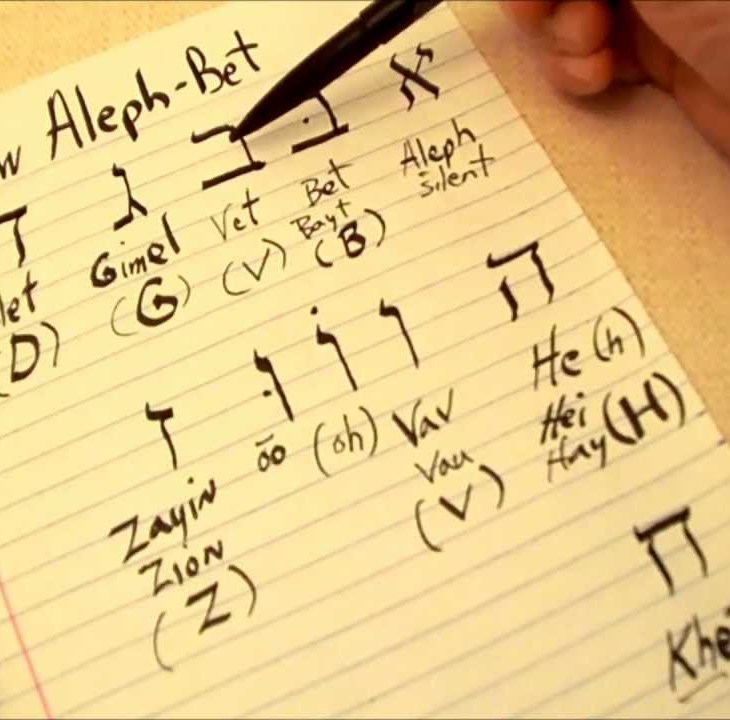 w Aleph-Bet
א בּ ב ג ד
let Gimel Vet Bet Aleph
Bayt silent
(D) (G) (V) (B)
ה ו וֹ וּ ז
Zayin ōō (ōh) Vav He (h)
Zion Vau Hei
Hay (H)
(Z) (V)
ח
Khe